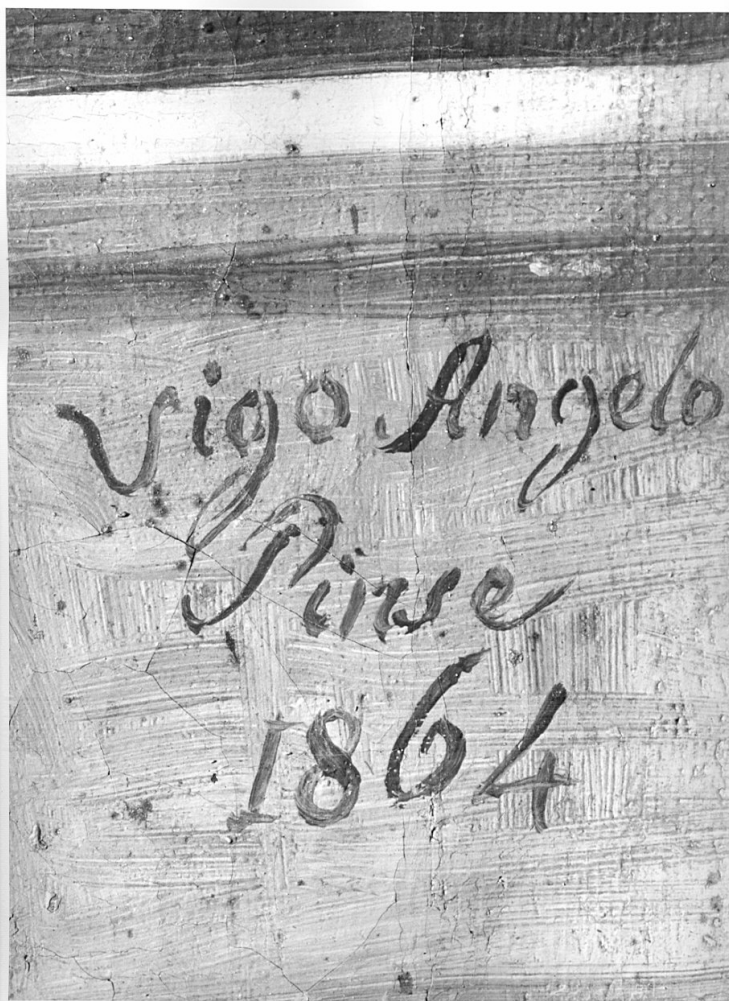 Vigo Angelo
Pinse
1864